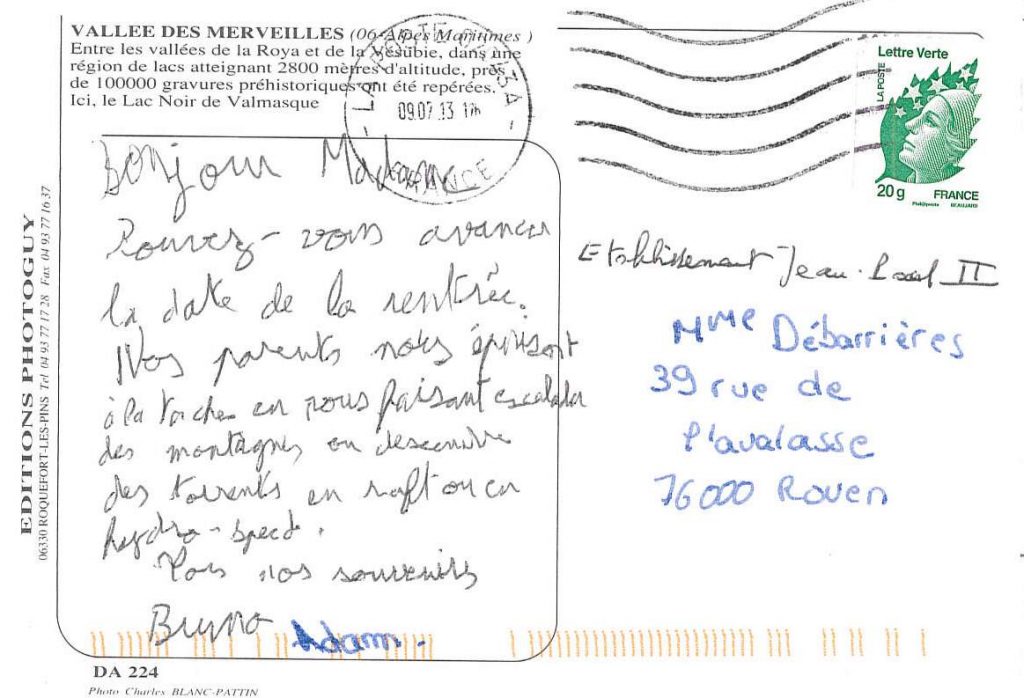 VALLEE DES MERVEILLES (06-Alpes Maritimes )
Entre les vallées de la Roya et de la Vésubie, dans une
région de lacs atteignant 2800 mètres d'altitude, près
de 100000 gravures préhistoriques ont été repérées.
Ici, le Lac Noir de Valmasque
LA POSTE
09.07.13
FRANCE
Lettre Verte
LA POSTE
20 g FRANCE
Phil@poste BEAUJARD
EDITIONS PHOTOGUY
06330 ROQUEFORT-LES-PINS Tel 04 93 77 17 28 Fax 04 93 77 16 37
Bonjour Madame
Pouvez-vous avancer
la date de la rentrée.
Nos parents nous épuisent
à la tache en nous faisant escalader
des montagnes ou descendre
des torrents en raft ou en
hydro-speed.
nos souvenirs
Bruno Adam.
Etablissement Jean-Paul II
Mme Débarrières
39 rue de
l'avalasse
76000 Rouen
DA 224
Photo Charles BLANC-PATTIN